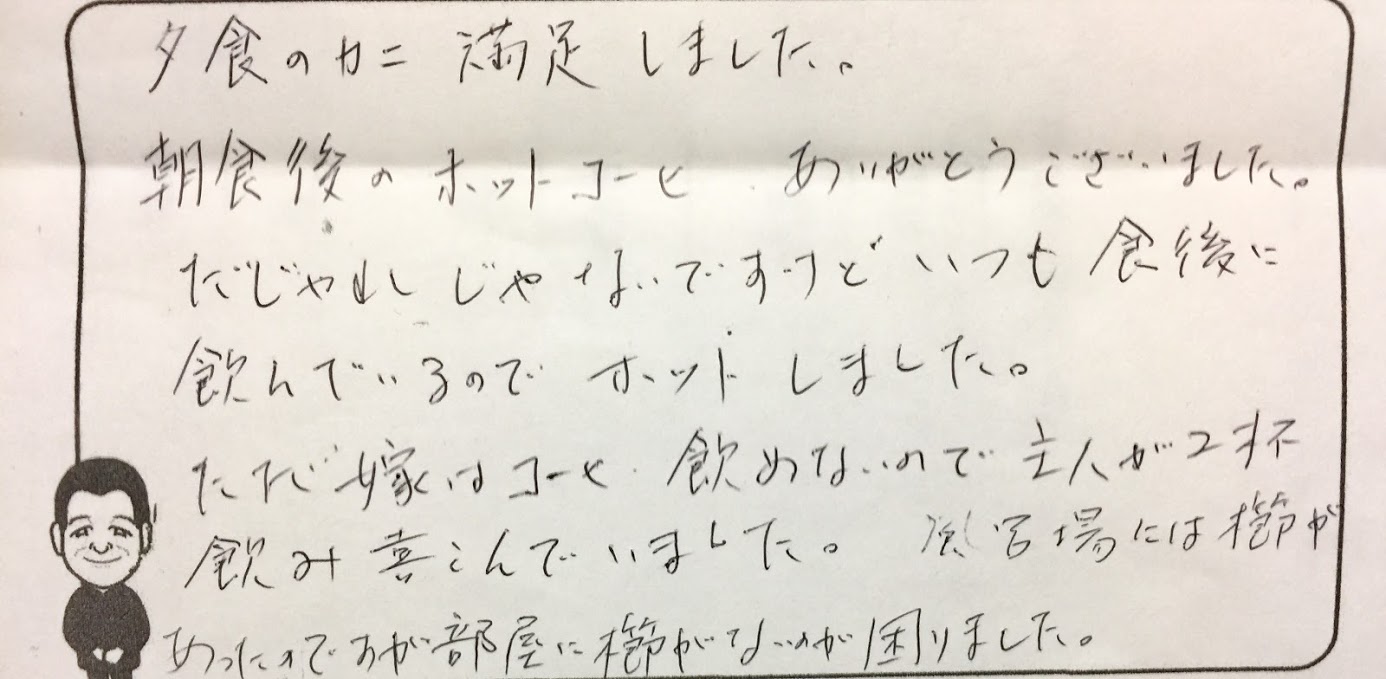 夕食のカニ 満足しました。
朝食後のホットコーヒ ありがとうございました。
だじゃれじゃないですけどいつも食後に
飲んでいるのでホットしました。
ただ嫁はコーヒ 飲めないので主人が2杯
飲み喜こんでいました。 風呂場には櫛が
あったのですが部屋に櫛がないのが困りました。